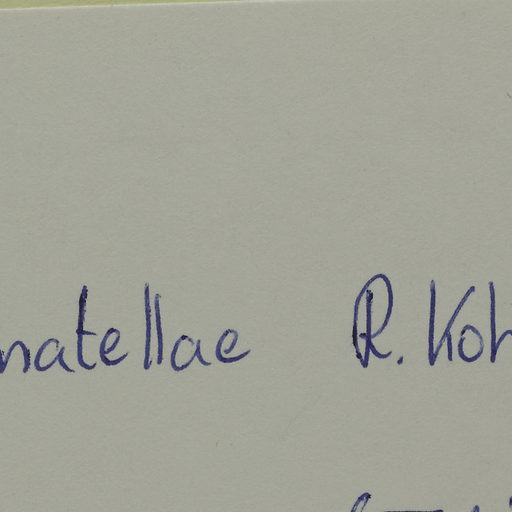 natellae R. Koh